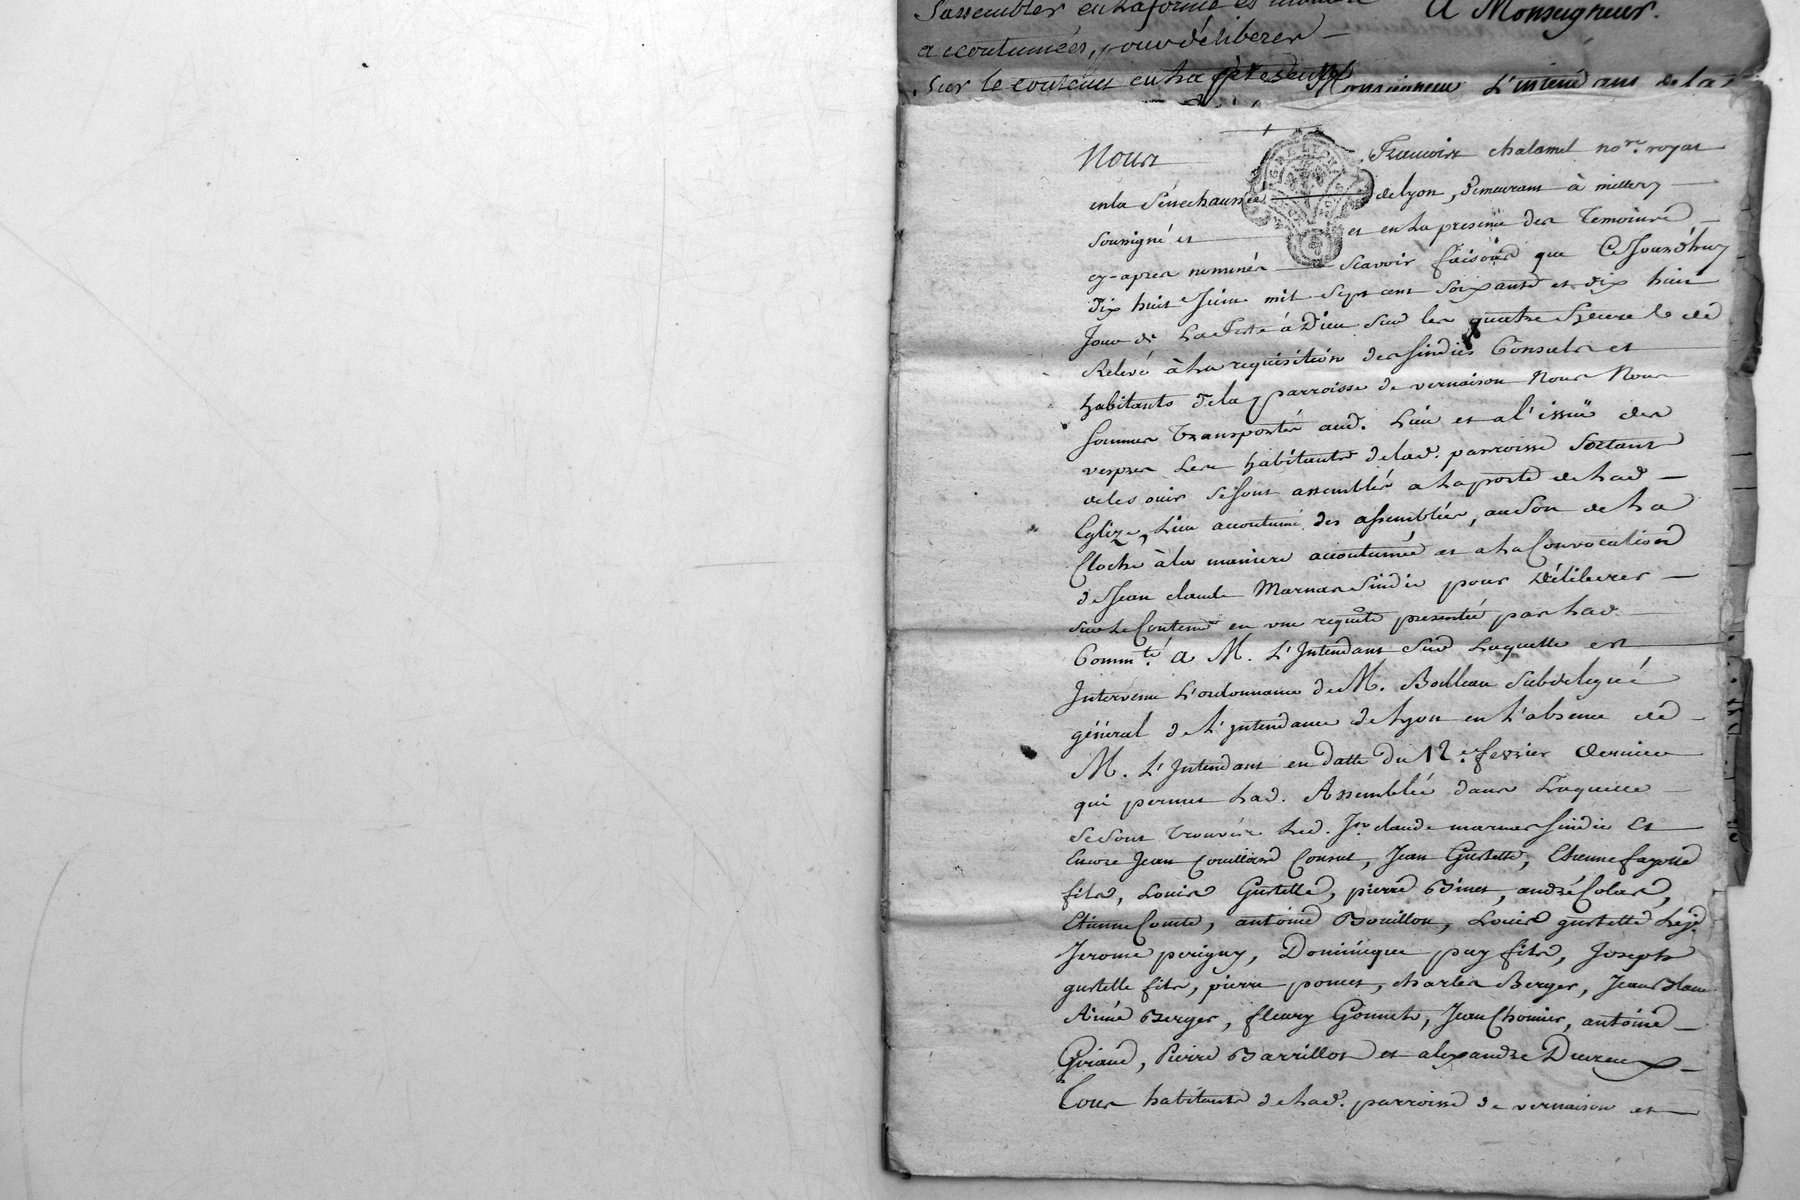 s'assembler en la forme et maniere
A Monseigneur.
accoutumées, pour déliberer
sur le contenu en la
Monseigneur L'intendant de la
Nous François chalamel no.re royal
en la Sénéchaussée de lyon, demeurant à millery
soussigné et et en la presence des Temoins
cy-apres nommés scavoir faisons que Ce Jourd'huy
Dix huit Juin mil sept cent soixante et dix huit
Jour de La Fete à Dieu sur les quatre heures de
Relevé à la requisition des sindics Consuls et
habitants de la parroisse de vernaison Nous Nous
sommes transportés aud. Lieu et a l'issüe des
vespres Les habitants de lad. parroisse sortant
de les ouir se sont assemblés a la porte de Lad.
Eglize, Lieu accoutumé des assemblées, au Son de La
Cloche à la maniere accoutumée et a la Convocation
de Jean claude Marnas Sindic pour Déliberer
sur Le Contenu en une requete presentée par Lad.
Comm.té a M. L'Intendant sur Laquelle est
Intervenu L'ordonnance de M. Boilleau subdelegué
général de L'intendance de Lyon en L'absence de
M. L'Intendant en datte du 12.e fevrier dernier
qui permet Lad. Assemblée dans Laquelle
se sont trouvés Led. Jn. claude marnas sindic Et
Encore Jean Couilloud Consul, Jean Gustelle, Etienne fayolle
fils, Louis Gustelle, pierre Binet, andré Colas,
Etienne Comte, antoine Bouillon, Louis gustelle Le j.e
Jerome perigny, Dominique puy fils, Joseph
gustelle fils, pierre poncet, charles Berger, Jean Blanc
Aimé Berger, fleury Gonnet, Jean Chomier, antoine
Giraud, Pierre Barrillot et alexandre Duvreux
Tous habitants de Lad. parroisse de vernaison et